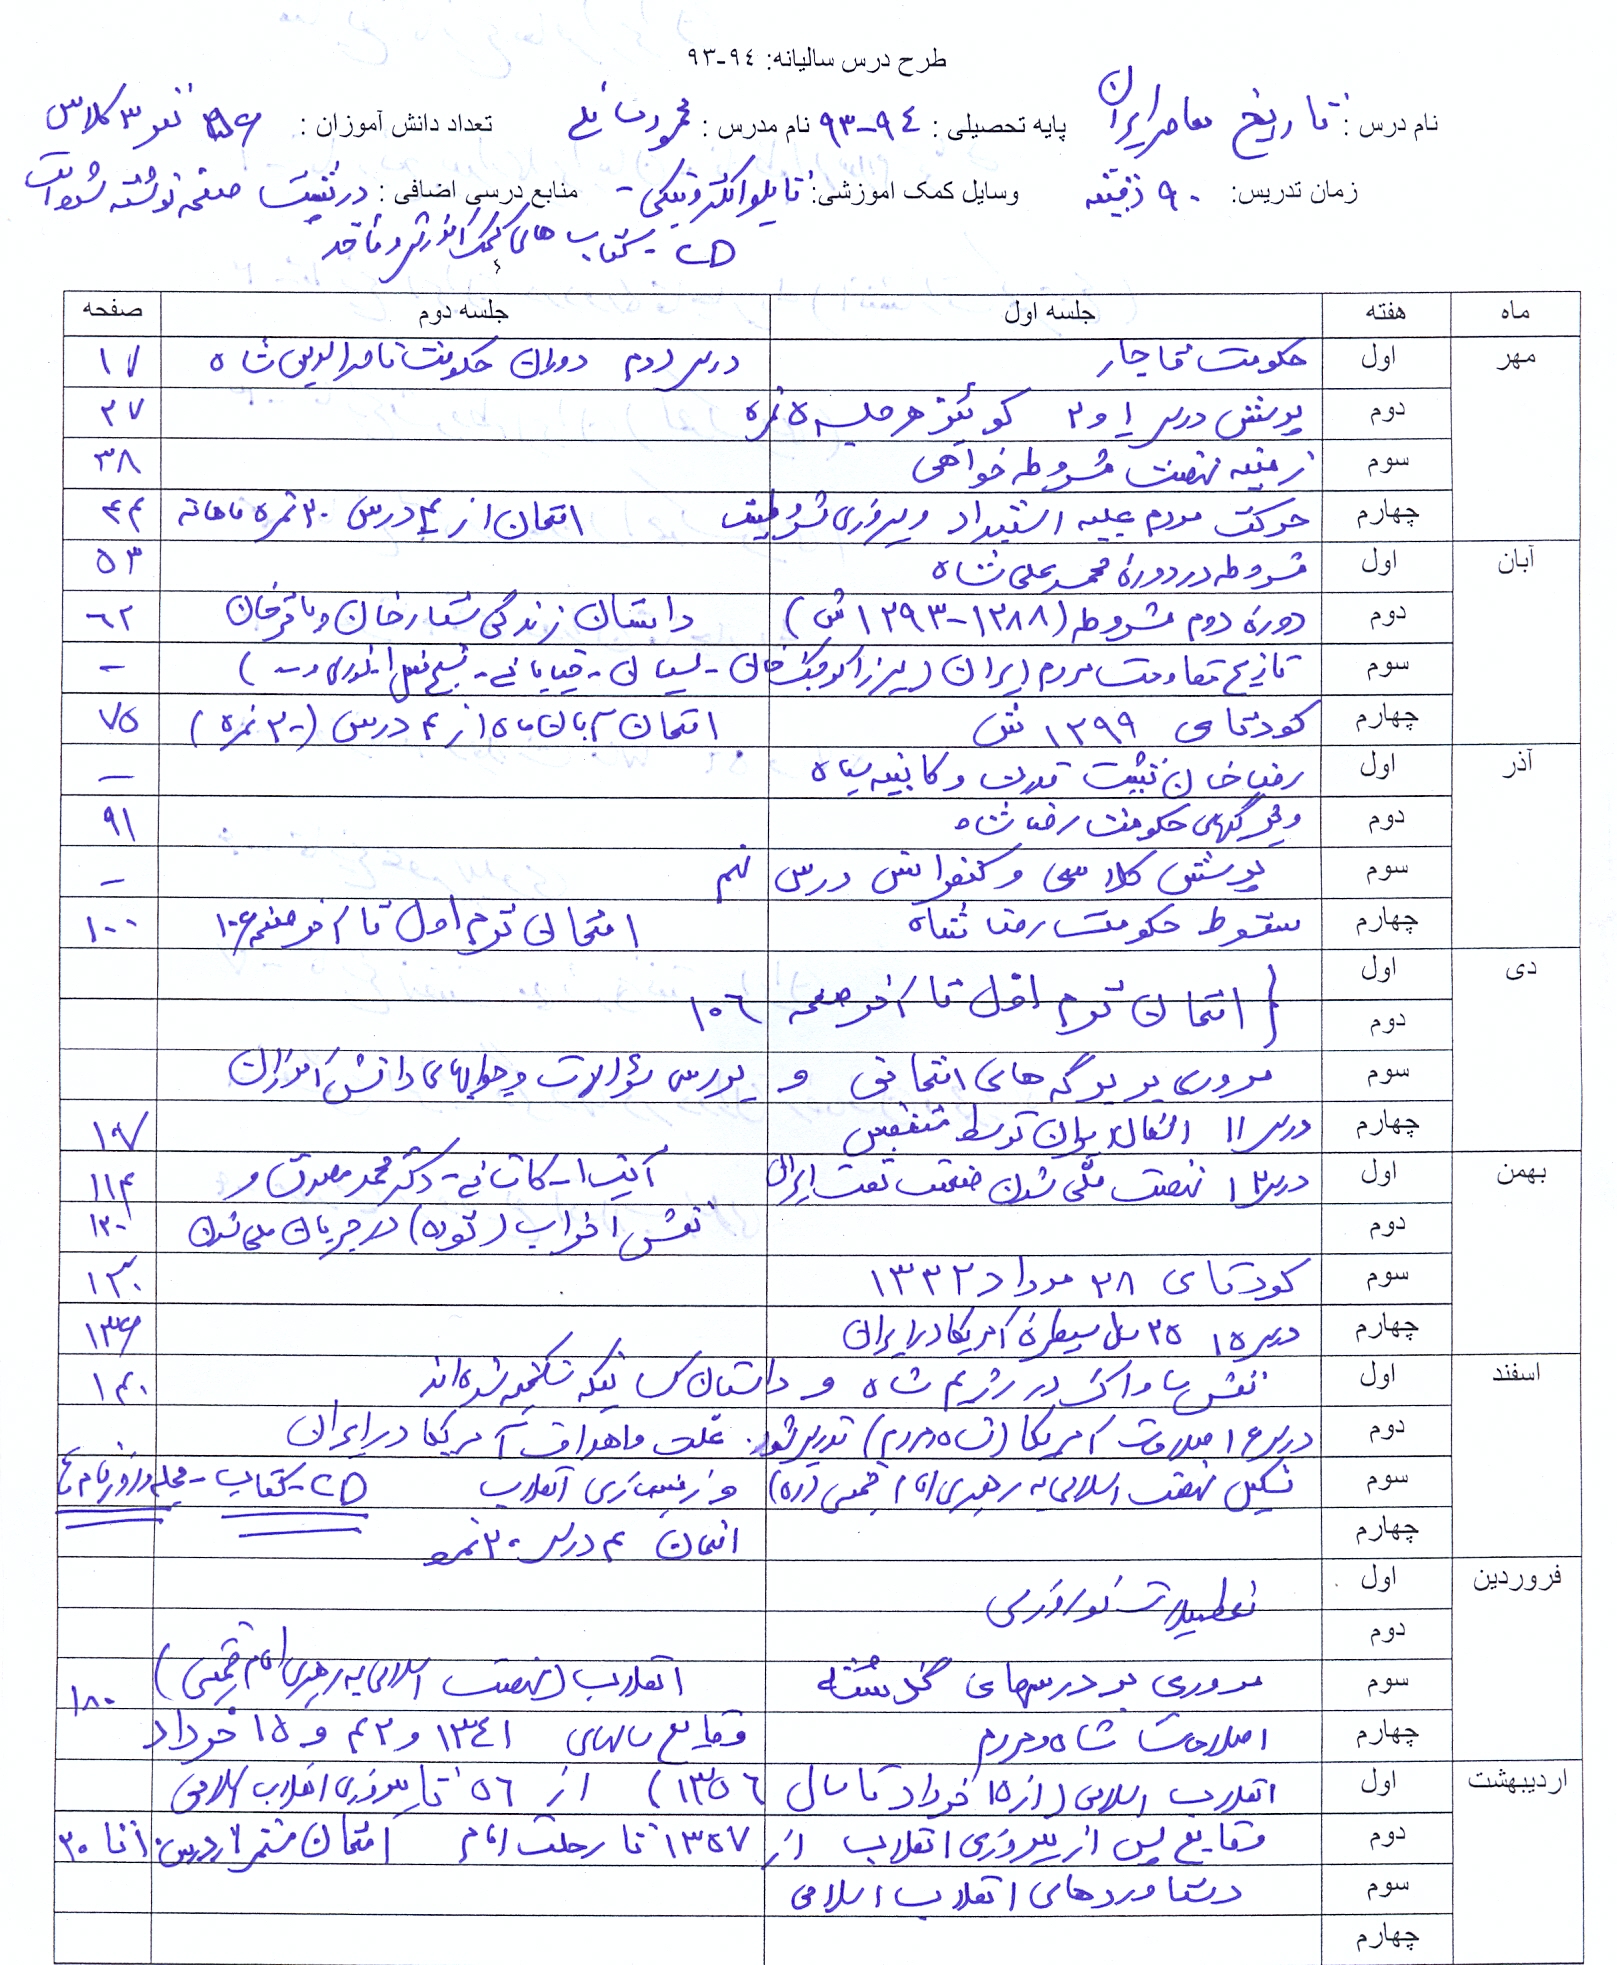 طرح درس سالیانه: ۹۴-۹۳
نام درس : تاریخ معاصر ایران پایه تحصیلی : ۹۴-۹۳ نام مدرس : تعداد دانش آموزان : نفر ۳ کلاس
زمان تدریس: ۹۰ دقیقه وسایل کمک اموزشی: تابلو الکترونیکی - منابع درسی اضافی : در پشت صفحه نوشته شده است
CD - کتاب های کمک آموزشی و نقد
ماه هفته جلسه اول جلسه دوم صفحه
مهر اول حکومت قاجار درس دوم دوران حکومت ناصرالدین شاه ۱۷
دوم پرسش درس ۱ و ۲ کوئیز هر جلسه ۵ نمره ۲۷
سوم زمینه نهضت مشروطه خواهی ۳۸
چهارم حرکت مردم علیه استبداد و پیروزی مشروطیت امتحان از ۴ درس ۲۰ نمره ماهانه ۴۴
آبان اول مشروطه در دوره محمد علی شاه ۵۳
دوم دوره دوم مشروطه (۱۲۸۸-۱۲۹۳ ش) داستان زندگی ستارخان و باقرخان ۶۲
سوم تاریخ مقاومت مردم ایران (میرزا کوچک خان - - خیابانی - شیخ فضل ا نوری و - ) -
چهارم کودتای ۱۲۹۹ ش امتحان آبان ماه از ۴ درس (۲۰ نمره) ۷۵
آذر اول رضاخان تثبیت قدرت و کابینه سیاه -
دوم ویژگیهای حکومت رضا شاه ۹۱
سوم پرسش کلاسی و کنفرانس درس نهم -
چهارم سقوط حکومت رضا شاه امتحان ترم اول تا آخر صفحه ۱۰۶ ۱۰۰
دی اول
{ امتحان ترم اول تا آخر صفحه ۱۰۶
دوم
سوم مروری بر برگه های امتحانی و بررسی سؤالات و جوابهای دانش آموزان
چهارم درس ۱۱ اشغال ایران توسط متفقین ۱۰۷
بهمن اول درس ۱۲ نهضت ملّی شدن صنعت نفت ایران آیت ا - کاشانی - دکتر محمد مصدق و ۱۱۴
دوم نقش احزاب (توده) در جریان ملی شدن ۱۲۰
سوم کودتای ۲۸ مرداد ۱۳۳۲ ۱۳۰
چهارم درس ۱۵ ۲۵ سال سیطره آمریکا در ایران ۱۳۶
اسفند اول نقش ساواک در رژیم شاه و داستان کسانیکه شکنجه شده اند ۱۴۰
دوم درس ۱۶ اصلاحات آمریکا (شاه و مردم) تدریس شود. علت و اهداف آمریکا در ایران
سوم تشکیل نهضت اسلامی به رهبری امام خمینی (ره) و زمینه سازی انقلاب CD - کتاب - مجله و روزنامه ها
چهارم امتحان ۴ درس ۲۰ نمره
فروردین اول
تعطیلات نوروزی
دوم
سوم مروری بر درسهای گذشته انقلاب (نهضت اسلامی به رهبری امام خمینی) ۱۸۰
چهارم اصلاحات شاه و مردم وقایع سالهای ۱۳۴۱ و ۴۲ و ۱۵ خرداد
اردیبهشت اول انقلاب اسلامی (از ۱۵ خرداد تا سال ۱۳۵۶) از ۵۶ تا پیروزی انقلاب اسلامی
دوم وقایع پس از پیروزی انقلاب از ۱۳۵۷ تا رحلت امام امتحان مستمر از درس ۱۰ تا ۲۰
سوم دستاوردهای انقلاب اسلامی
چهارم